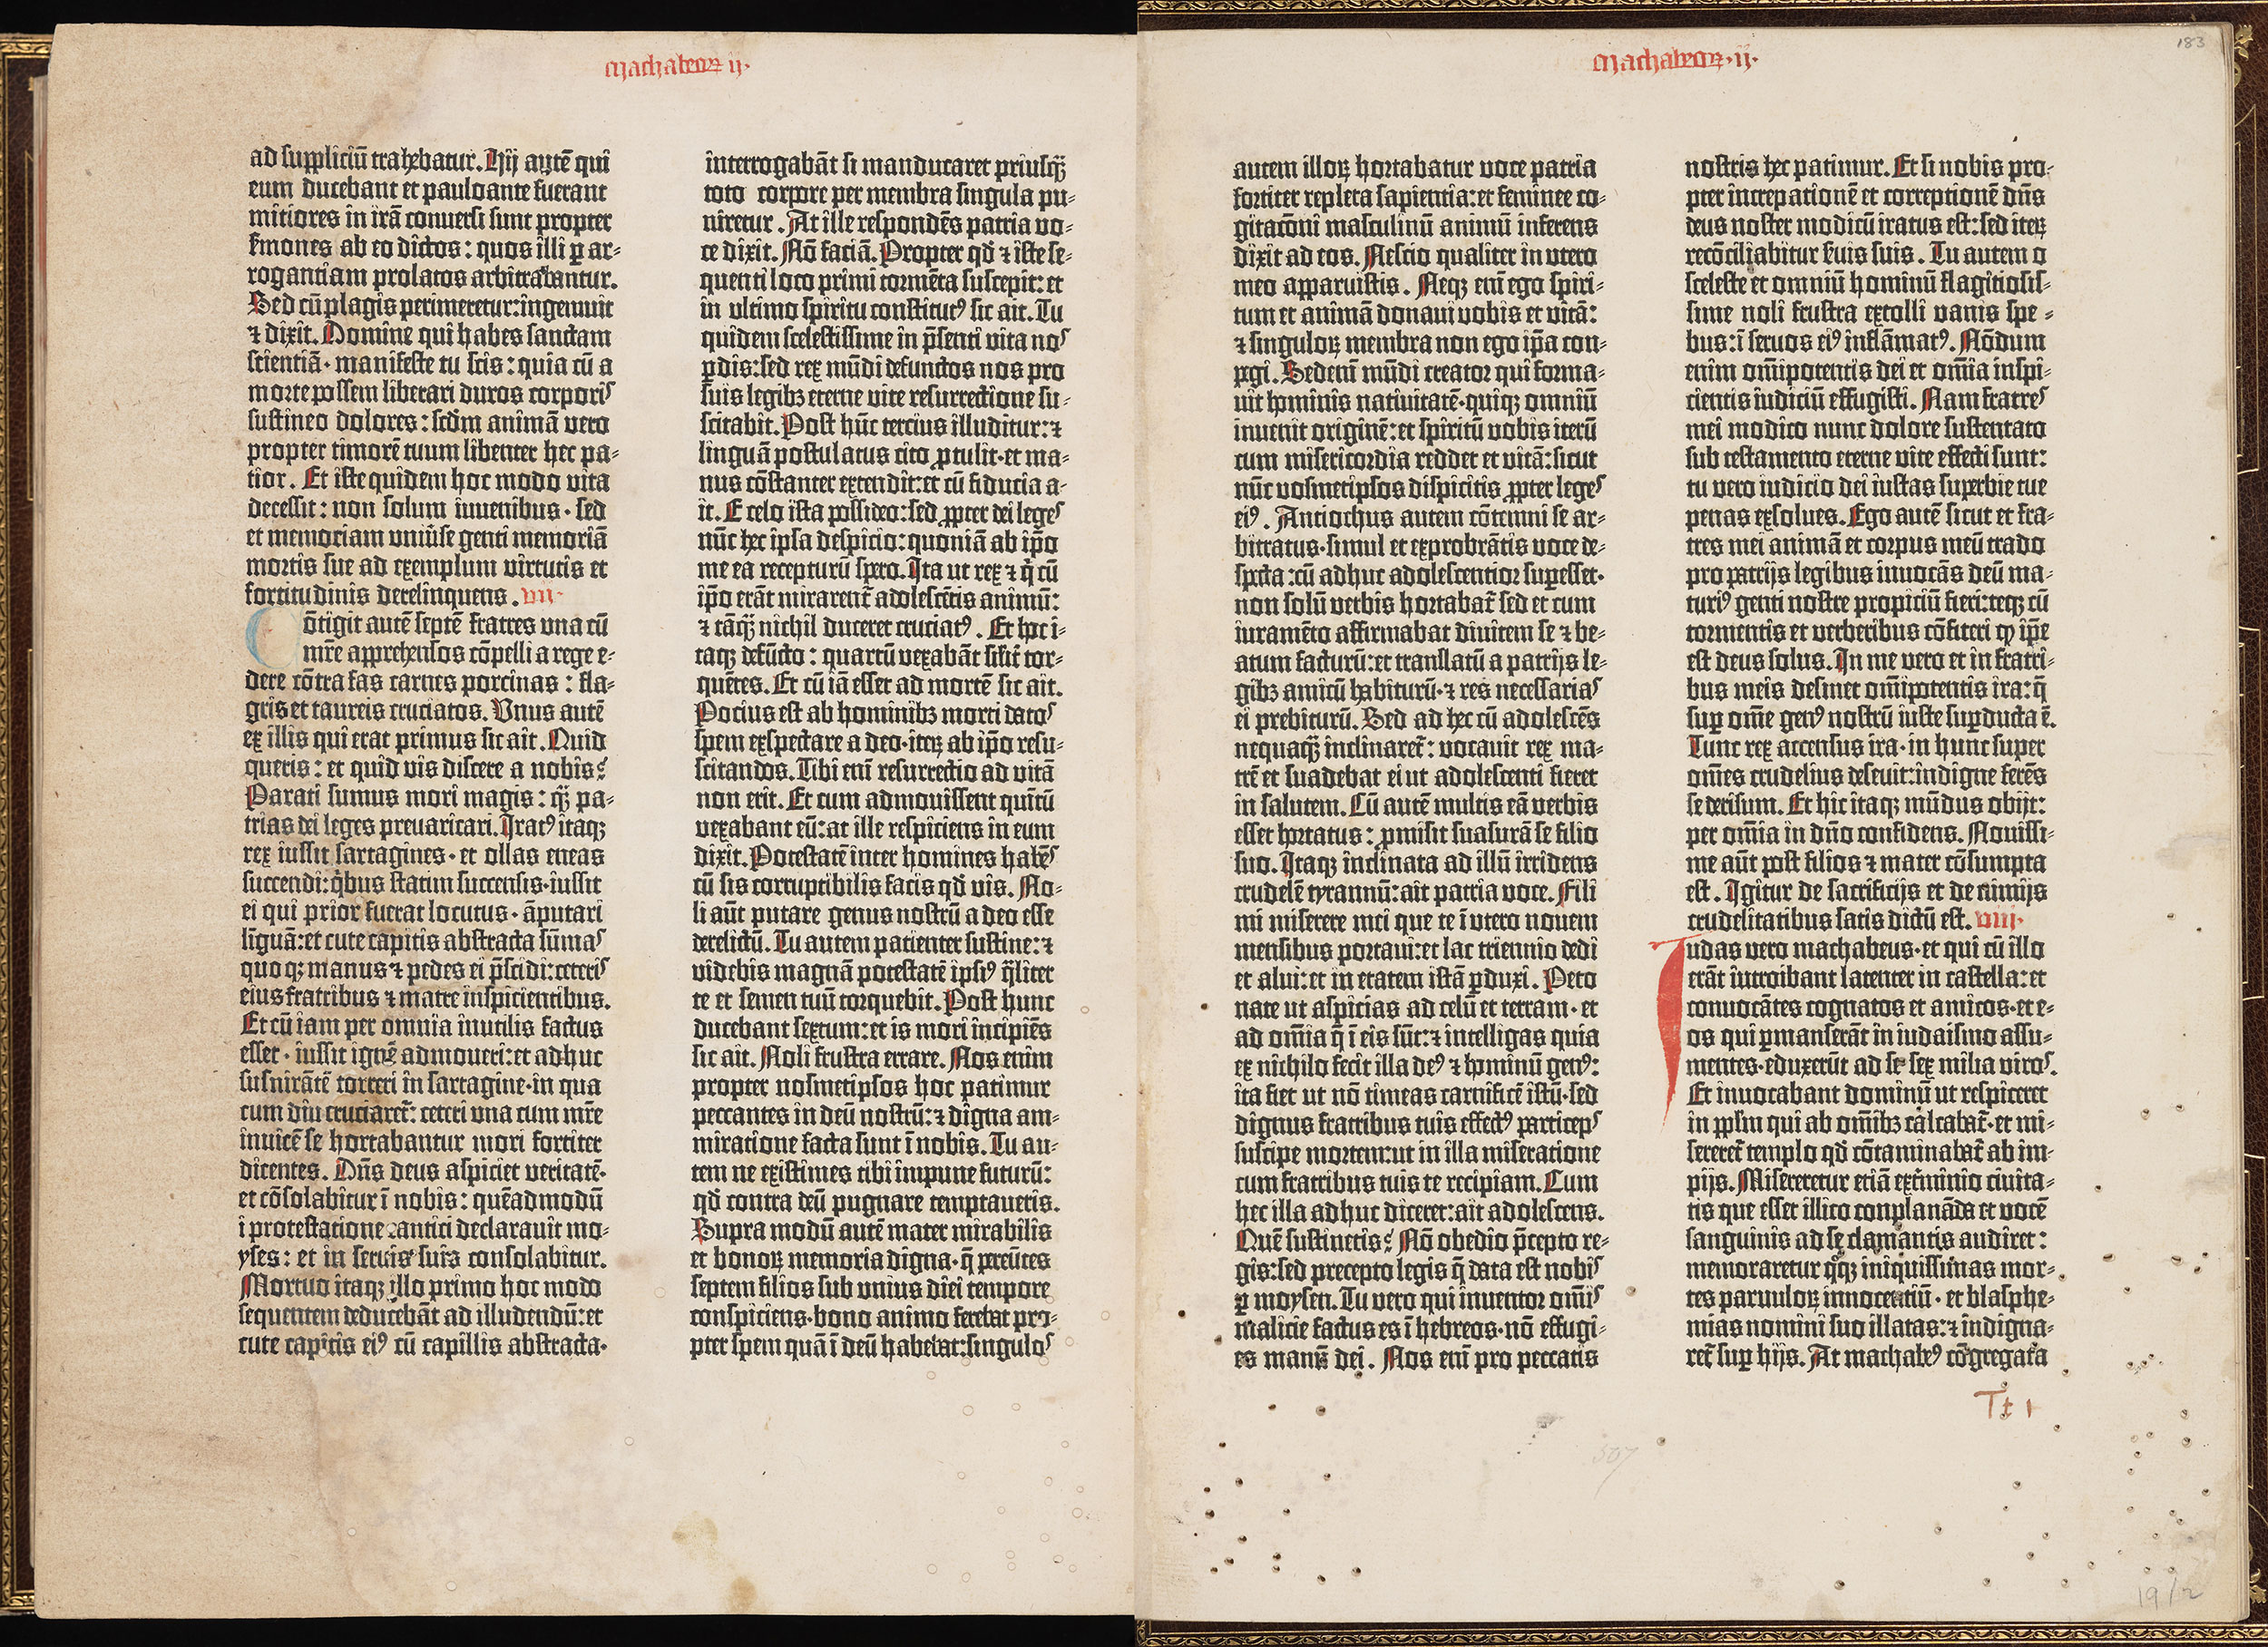 Machabeoꝝ ij.
ad suppliciū trahebatur. Hij autē qui
eum ducebant et pauloante fuerant
mitiores in irā conversi sunt propter
s̄mones ab eo dictos: quos illi ꝑ ar-
rogantiam prolatos arbitrabantur.
Sed cū plagis perimeretur: ingemuit
⁊ dixit. Domine qui habes sanctam
scientiā· manifeste tu scis: quia cū a
morte possem liberari duros corporis
sustineo dolores: scd̄m animā vero
propter timorē tuum libenter hec pa-
tior. Et iste quidem hoc modo vita
decessit: non solum iuvenibus· sed
et memoriam univ̄se genti memoriā
mortis sue ad exemplum virtutis et
fortitudinis derelinquens. vii·
Cōtigit autē septē fratres una cū
mr̄e apprehensos cōpelli a rege e-
dere cōtra fas carnes porcinas: fla-
gris et taureis cruciatos. Unus autē
ex illis qui erat primus sic ait. Quid
queris: et quid vis discere a nobis?
Parati sumus mori magis: q̄ꝫ pa-
trias dei leges prevaricari. Iratꝰ itaqꝫ
rex iussit sartagines· et ollas eneas
succendi: qͥbus statim succensis· iussit
ei qui prior fuerat locutus· āputari
līguā: et cute capitis abstracta sūmas
quoqꝫ manus ⁊ pedes ei p̄scidi: ceteris
eius fratribus ⁊ matre inspicientibus.
Et cū iam per omnia inutilis factus
esset· iussit ignē admoveri: et adhuc
suspirātē torreri in sartagine· in qua
cum diu cruciaret᷑: ceteri una cum mr̄e
invicē se hortabantur mori fortiter
dicentes. Dn̄s deus aspiciet veritatē·
et cōsolabitur ī nobis: quēadmodū
ī protestatione cantici declaravit mo-
yses: et in servis suis consolabitur.
Mortuo itaqꝫ illo primo hoc modo
sequentem deducebāt ad illudendū: et
cute capitis eiꝰ cū capillis abstracta·
interrogabāt si manducaret priusq̄ꝫ
toto corpore per membra singula pu-
niretur. At ille respondēs patria vo-
ce dixit. Nō faciā. Propter qd̄ ⁊ iste se-
quenti loco primi tormēta suscepit: et
in ultimo spiritu constitutꝰ sic ait. Tu
quidem scelestissime in p̄senti vita nos
ꝑdis: sed rex mūdi defunctos nos pro
suis legibꝫ eterne vite resurrectione su-
scitabit. Post hūc tercius illuditur: ⁊
linguā postulatus cito ꝓtulit· et ma-
nus cōstanter extendit: et cū fiducia a-
it. E celo ista possideo: sed ꝓpter dei leges
nūc hec ipsa despicio: quoniā ab ip̄o
me ea recepturū spero. Ita ut rex ⁊ qͥ cū
ip̄o erāt mirarent᷑ adolescētis animū:
⁊ tāq̄ꝫ nichil duceret cruciatꝰ. Et hoc i-
taqꝫ defūcto: quartū vexabāt silit᷑ tor-
quētes. Et cū iā esset ad mortē sic ait.
Pocius est ab hominibꝫ morti datos
spem exspectare a deo· iteꝝ ab ip̄o resu-
scitandos. Tibi eni᷑ resurrectio ad vitā
non erit. Et cum admovissent quītū
vexabant eū: at ille respiciens in eum
dixit. Potestatē inter homines habēs
cū sis corruptibilis facis qd̄ vis. No-
li aūt putare genus nostrū a deo esse
derelictū. Tu autem patienter sustine: ⁊
videbis magnā potestatē ipsiꝰ qͣliter
te et semen tuū torquebit. Post hunc
ducebant sextum: et is mori incipiēs
sic ait. Noli frustra errare. Nos enim
propter nosmetipsos hoc patimur
peccantes in deū nostrū: ⁊ digna am-
miratione facta sunt ī nobis. Tu au-
tem ne existimes tibi impune futurū:
qd̄ contra deū pugnare temptaveris.
Supra modū autē mater mirabilis
et bonoꝝ memoria digna· q̄ pereūtes
septem filios sub unius diei tempore
conspiciens· bono animo ferebat pro-
pter spem quā ī deū habebat: singulos
Machabeoꝝ· ij·
autem illoꝝ hortabatur voce patria
fortiter repleta sapientia: et feminee co-
gitacōni masculinū animū inferens
dixit ad eos. Nescio qualiter in utero
meo apparuistis. Neqꝫ eni᷑ ego spiri-
tum et animā donavi vobis et vitā:
⁊ singuloꝝ membra non ego ip̄a con-
pegi. Sed eni᷑ mūdi creator qui forma-
vit hominis nativitatē· quiqꝫ omniū
invenit originē: et spiritū vobis iterū
cum misericordia reddet et vitā: sicut
nūc vosmetipsos dispicitis ꝓpter leges
eiꝰ. Antiochus autem cōtemni se ar-
bitratus· simul et exprobrātis voce de-
specta: cū adhuc adolescentior superesset·
non solū verbis hortabat᷑ sed et cum
iuramēto affirmabat divitem se ⁊ be-
atum facturū: et translatū a patrijs le-
gibꝫ amicū habiturū· ⁊ res necessarias
ei prebiturū. Sed ad hec cū adolescēs
nequaq̄ꝫ inclinaret᷑: vocavit rex ma-
trē et suadebat ei ut adolescenti fieret
in salutem. Cū autē multis eā verbis
esset hortatus: ꝓmisit suasurā se filio
suo. Itaqꝫ inclinata ad illū irridens
crudelē tyrannū: ait patria voce. Fili
mi miserere mei que te ī utero novem
mensibus portavi: et lac triennio dedi
et alui: et in etatem istā ꝑduxi. Peto
nate ut aspicias ad celū et terram· et
ad om̄ia q̄ ī eis sūt: ⁊ intelligas quia
ex nichilo fecit illa deꝰ ⁊ hominū genꝰ:
ita fiet ut nō timeas carnificē istū· sed
dignus fratribus tuis effectꝰ particeps
suscipe mortem: ut in illa miseratione
cum fratribus tuis te recipiam. Cum
hec illa adhuc diceret: ait adolescens.
Quē sustinetis? Nō obedio p̄cepto re-
gis: sed precepto legis q̄ data est nobis
ꝑ moysen. Tu vero qui inventor om̄is
malicie factus es ī hebreos· nō effugi-
es manū dei. Nos eni᷑ pro peccatis
nostris hec patimur. Et si nobis pro-
pter increpationē et correptionē dn̄s
deus noster modicū iratus est: sed iteꝝ
recōciliabitur s̄vis suis. Tu autem o
sceleste et omniū hominū flagitiosis-
sime noli frustra extolli vanis spe-
bus: ī servos eiꝰ inflāmatꝰ. Nōdum
enim om̄ipotentis dei et om̄ia inspi-
cientis iudiciū effugisti. Nam fratres
mei modico nunc dolore sustentato
sub testamento eterne vite effecti sunt:
tu vero iudicio dei iustas superbie tue
penas exsolves. Ego autē sicut et fra-
tres mei animā et corpus meū trado
pro patrijs legibus invocās deū ma-
turiꝰ genti nostre propiciū fieri: teqꝫ cū
tormentis et verberibus cōfiteri ꝙ ip̄e
est deus solus. In me vero et in fratri-
bus meis desinet om̄ipotentis ira: q̄
suꝑ om̄e genꝰ nostrū iuste suꝑducta ē.
Tunc rex accensus ira· in hunc super
om̄es crudelius desevit: indigne ferēs
se derisum. Et hic itaqꝫ mūdus obijt:
per om̄ia in dn̄o confidens. Novissi-
me aūt post filios ⁊ mater cōsumpta
est. Igitur de sacrificijs et de nimijs
crudelitatibus satis dictū est. viii·
Iudas vero machabeus· et qui cū illo
erāt introibant latenter in castella: et
convocātes cognatos et amicos· et e-
os qui ꝑmanserāt in iudaismo assu-
mentes· eduxerūt ad se sex milia viros.
Et invocabant dominū ut respiceret
in pplm̄ qui ab om̄ibꝫ calcabat᷑· et mi-
sereret᷑ templo qd̄ cōtaminabat᷑ ab im-
pijs. Misereretur etiā ext̄minio civita-
tis que esset illico conplanāda et vocē
sanguinis ad se clamantis audiret:
memoraretur qͦqꝫ iniquissimas mor-
tes parvuloꝝ innocentiū· et blasphe-
mias nomini suo illatas: ⁊ indigna-
ret᷑ suꝑ hijs. At machabeꝰ cōgregata
Tt 1
183
507
19/2